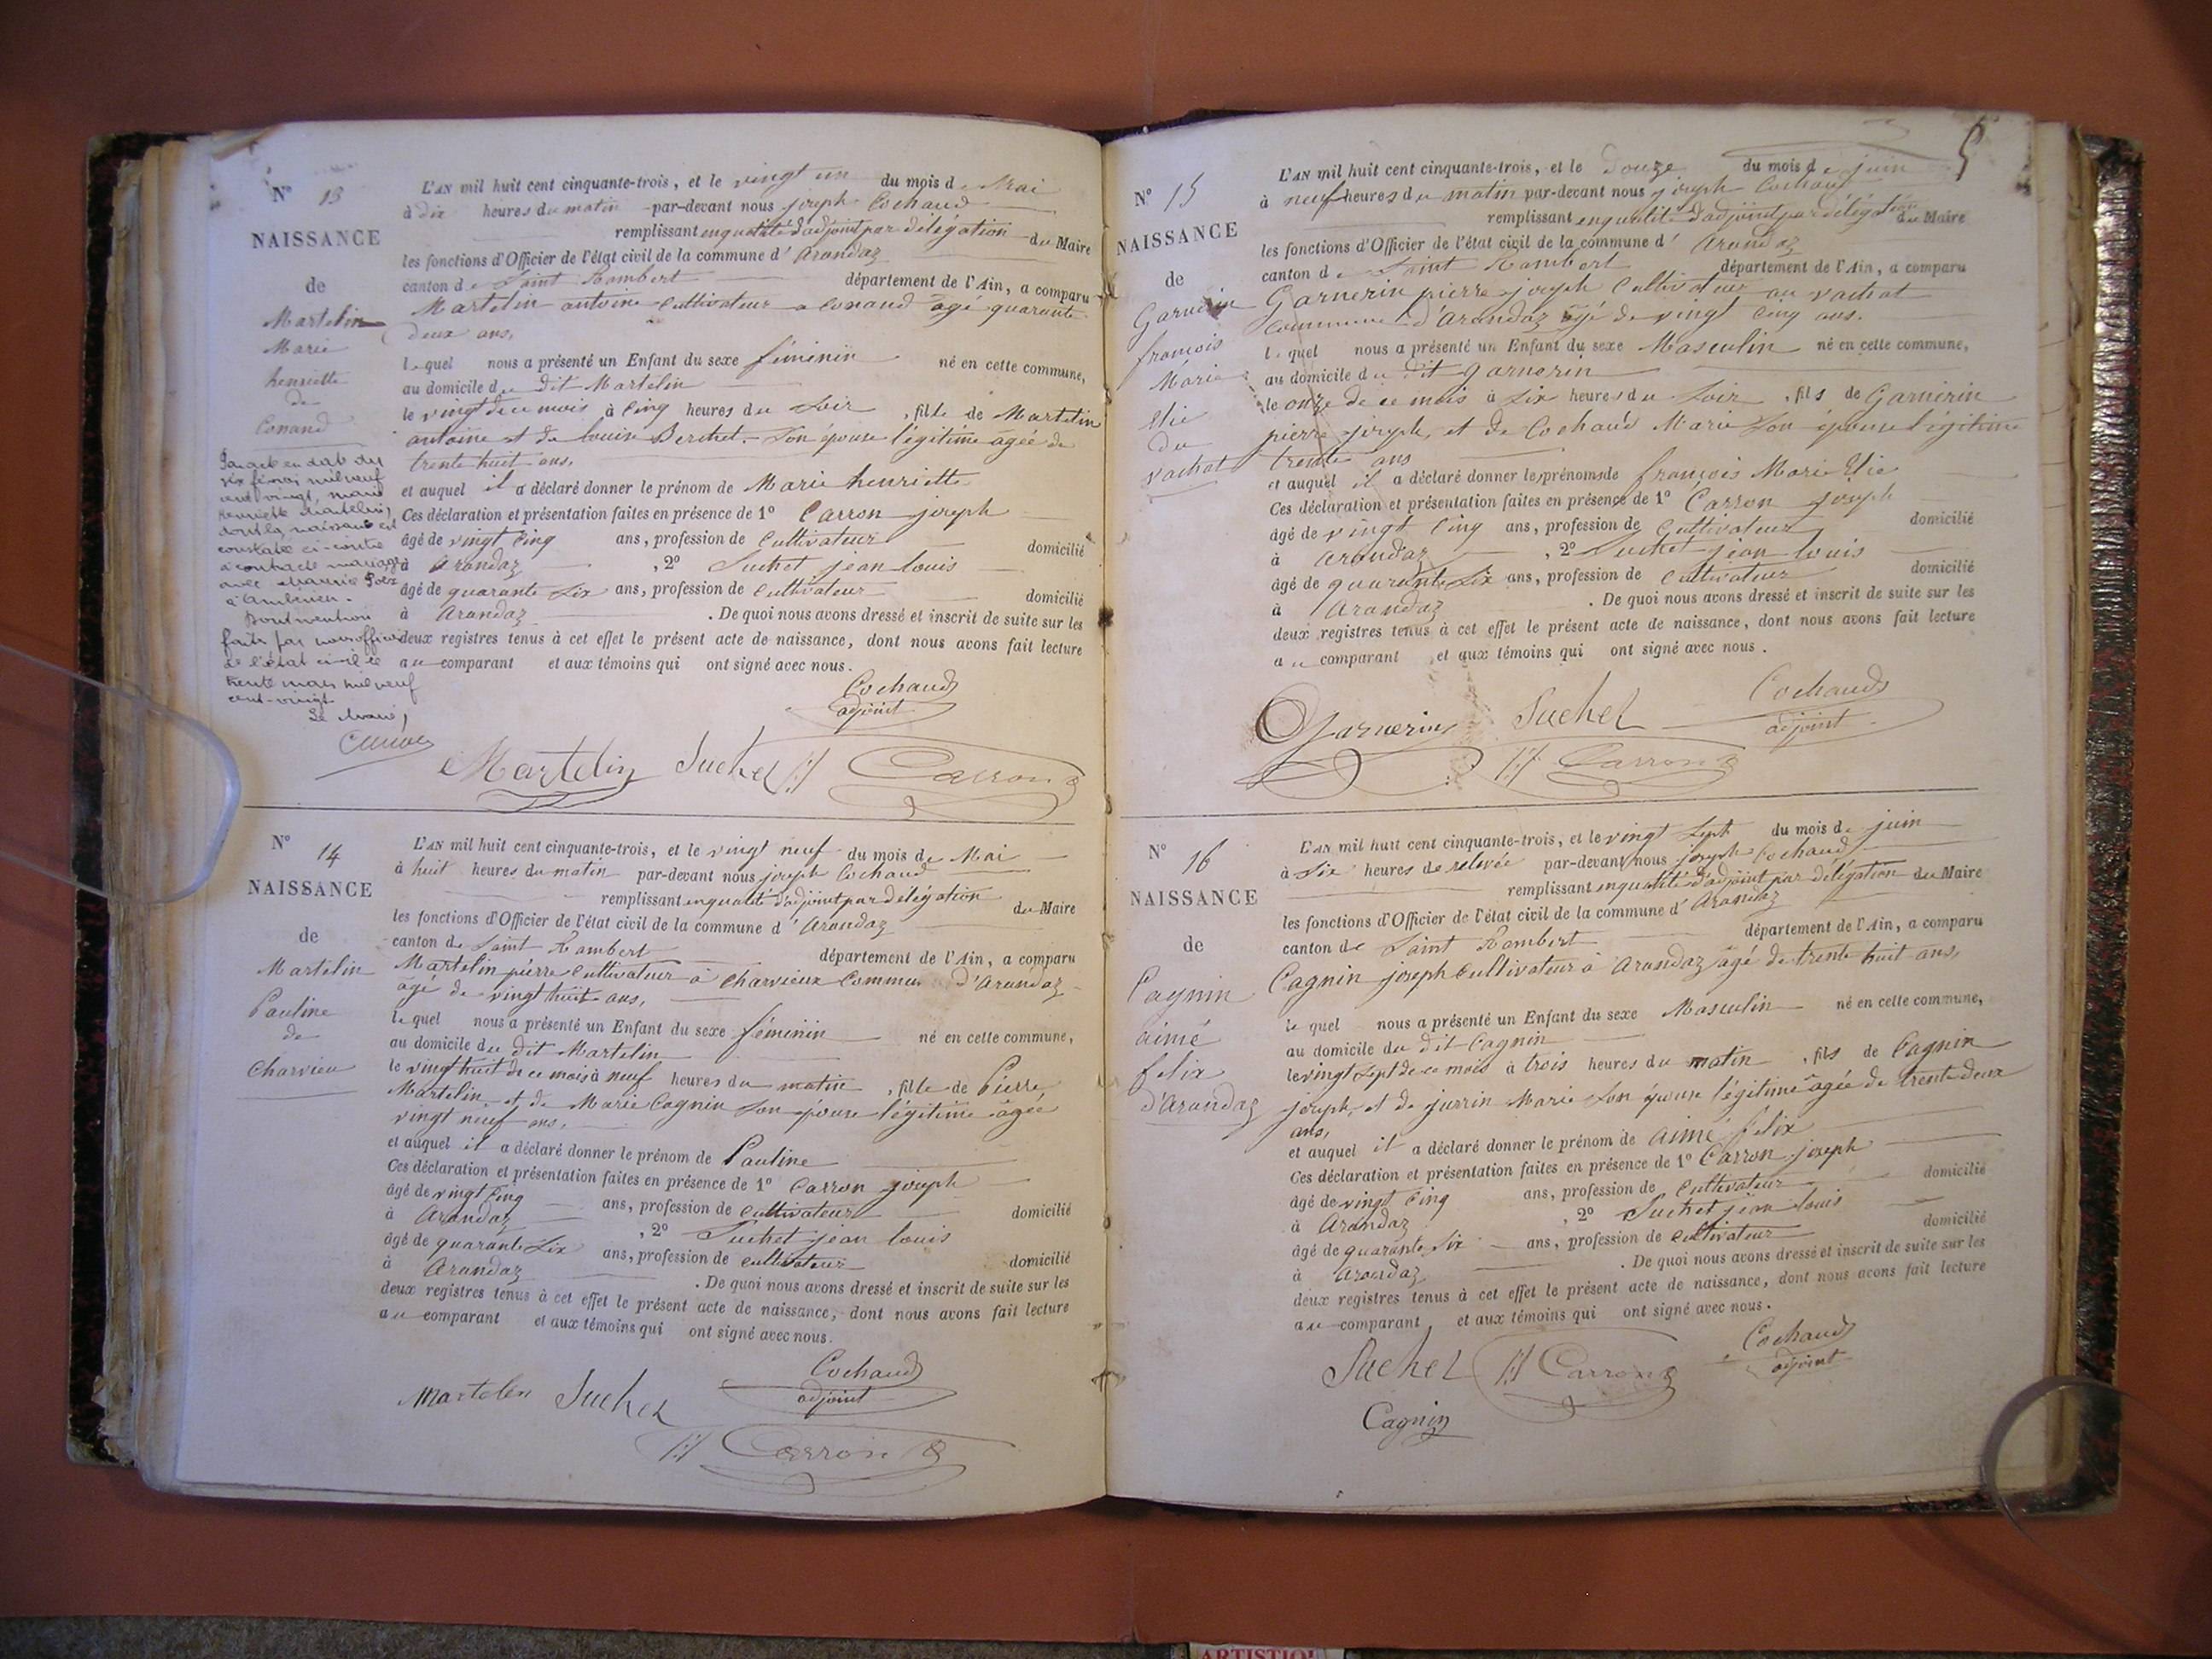 N° 13
NAISSANCE
de
Martelin
Marie
henriette
de
Conand
Par acte en date du
six février mil neuf
cent vingt, Marie
henriette Martelin,
dont la naissance est
constatée ci-contre
a contracté mariage
avec
à Ambérieu.
Dont mention
faite par nous officier
de l'état civil le
trente mars mil neuf
cent-vingt
Le Maire,
L'AN mil huit cent cinquante-trois, et le vingt un du mois de Mai
à dix heures du matin par-devant nous joseph Cochaud
remplissant en qualité d'adjoint par délégation du Maire
les fonctions d'Officier de l'état civil de la commune d'Arandaz
canton de Saint Rambert département de l'Ain, a comparu
Martelin antoine cultivateur a Conand âgé quarante
deux ans,
lequel nous a présenté un Enfant du sexe féminin né en cette commune,
au domicile du dit Martelin
le vingt de ce mois à cinq heures du soir, fille de Martelin
antoine et de louise Berchet son épouse légitime agée de
trente huit ans,
et auquel il a déclaré donner le prénom de Marie henriette
Ces déclaration et présentation faites en présence de 1° Carron joseph
âgé de vingt cinq ans, profession de Cultivateur domicilié
à Arandaz, 2° Suchet jean louis
âgé de quarante six ans, profession de cultivateur domicilié
à Arandaz. De quoi nous avons dressé et inscrit de suite sur les
deux registres tenus à cet effet le présent acte de naissance, dont nous avons fait lecture
au comparant et aux témoins qui ont signé avec nous.
Cochaud
adjoint
Martelin Suchet Carron
N° 14
NAISSANCE
de
Martelin
Pauline
de
Charvieu
L'AN mil huit cent cinquante-trois, et le vingt neuf du mois de Mai
à huit heures du matin par-devant nous joseph Cochaud
remplissant en qualité d'adjoint par délégation du Maire
les fonctions d'Officier de l'état civil de la commune d'Arandaz
canton de Saint Rambert département de l'Ain, a comparu
Martelin pierre cultivateur à Charvieux Commune d'Arandaz
agé de vingt huit ans,
lequel nous a présenté un Enfant du sexe féminin né en cette commune,
au domicile du dit Martelin
le vingt huit de ce mois à neuf heures du matin, fille de Pierre
Martelin et de Marie Cagnin son épouse légitime agée
vingt neuf ans,
et auquel il a déclaré donner le prénom de Pauline
Ces déclaration et présentation faites en présence de 1° Carron joseph
âgé de vingt cinq ans, profession de cultivateur domicilié
à Arandaz, 2° Suchet jean louis
âgé de quarante six ans, profession de cultivateur domicilié
à Arandaz. De quoi nous avons dressé et inscrit de suite sur les
deux registres tenus à cet effet le présent acte de naissance, dont nous avons fait lecture
au comparant et aux témoins qui ont signé avec nous.
Cochaud
adjoint
Martelin Suchet
Carron
5
N° 15
NAISSANCE
de
Garnerin
françois
Marie
Elie
du
vachat
L'AN mil huit cent cinquante-trois, et le douze du mois de juin
à neuf heures du matin par-devant nous joseph Cochaud
remplissant en qualité d'adjoint par délégation du Maire
les fonctions d'Officier de l'état civil de la commune d'Arandaz
canton de Saint Rambert département de l'Ain, a comparu
Garnerin pierre joseph Cultivateur au vachat
Commune d'Arandaz âgé de vingt cinq ans.
lequel nous a présenté un Enfant du sexe Masculin né en cette commune,
au domicile du dit garnerin
le onze de ce mois à six heures du soir, fils de Garnerin
pierre joseph, et de Cochaud Marie son épouse légitime
trente ans
et auquel il a déclaré donner les prénoms de françois Marie Elie
Ces déclaration et présentation faites en présence de 1° Carron joseph
âgé de vingt cinq ans, profession de Cultivateur domicilié
à Arandaz, 2° Suchet jean louis
âgé de quarante six ans, profession de Cultivateur domicilié
à Arandaz. De quoi nous avons dressé et inscrit de suite sur les
deux registres tenus à cet effet le présent acte de naissance, dont nous avons fait lecture
au comparant et aux témoins qui ont signé avec nous.
Cochaud
adjoint
Garnerin Suchet
Carron
N° 16
NAISSANCE
de
Cagnin
aimé
felix
d'Arandaz
L'AN mil huit cent cinquante-trois, et le vingt sept du mois de juin
à six heures de relevée par-devant nous joseph Cochaud
remplissant en qualité d'adjoint par délégation du Maire
les fonctions d'Officier de l'état civil de la commune d'Arandaz
canton de Saint Rambert département de l'Ain, a comparu
Cagnin joseph cultivateur à Arandaz agé de trente huit ans,
lequel nous a présenté un Enfant du sexe Masculin né en cette commune,
au domicile du dit Cagnin
le vingt sept de ce mois à trois heures du matin, fils de Cagnin
joseph, et de jurrin Marie son épouse légitime agée de trente deux
ans,
et auquel il a déclaré donner le prénom de aimé felix
Ces déclaration et présentation faites en présence de 1° Carron joseph
âgé de vingt cinq ans, profession de Cultivateur domicilié
à Arandaz, 2° Suchet jean louis
âgé de quarante six ans, profession de cultivateur domicilié
à Arandaz. De quoi nous avons dressé et inscrit de suite sur les
deux registres tenus à cet effet le présent acte de naissance, dont nous avons fait lecture
au comparant et aux témoins qui ont signé avec nous.
Cochaud
adjoint
Suchet Carron
Cagnin